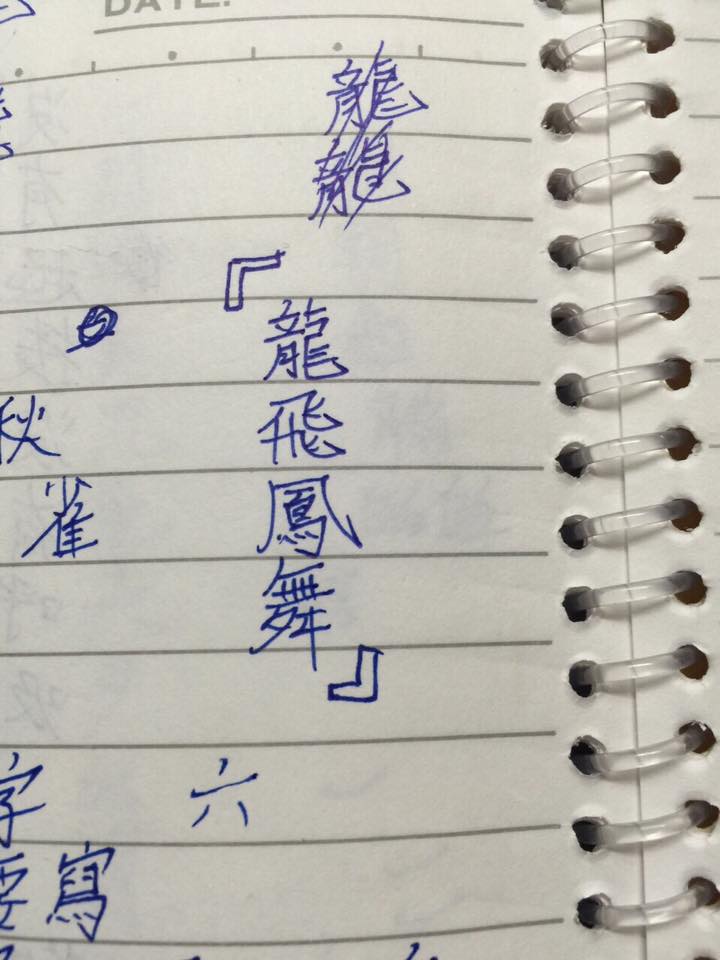 DATE.
龍
龍
『龍飛鳳舞』
秋
雀
六
字
要寫